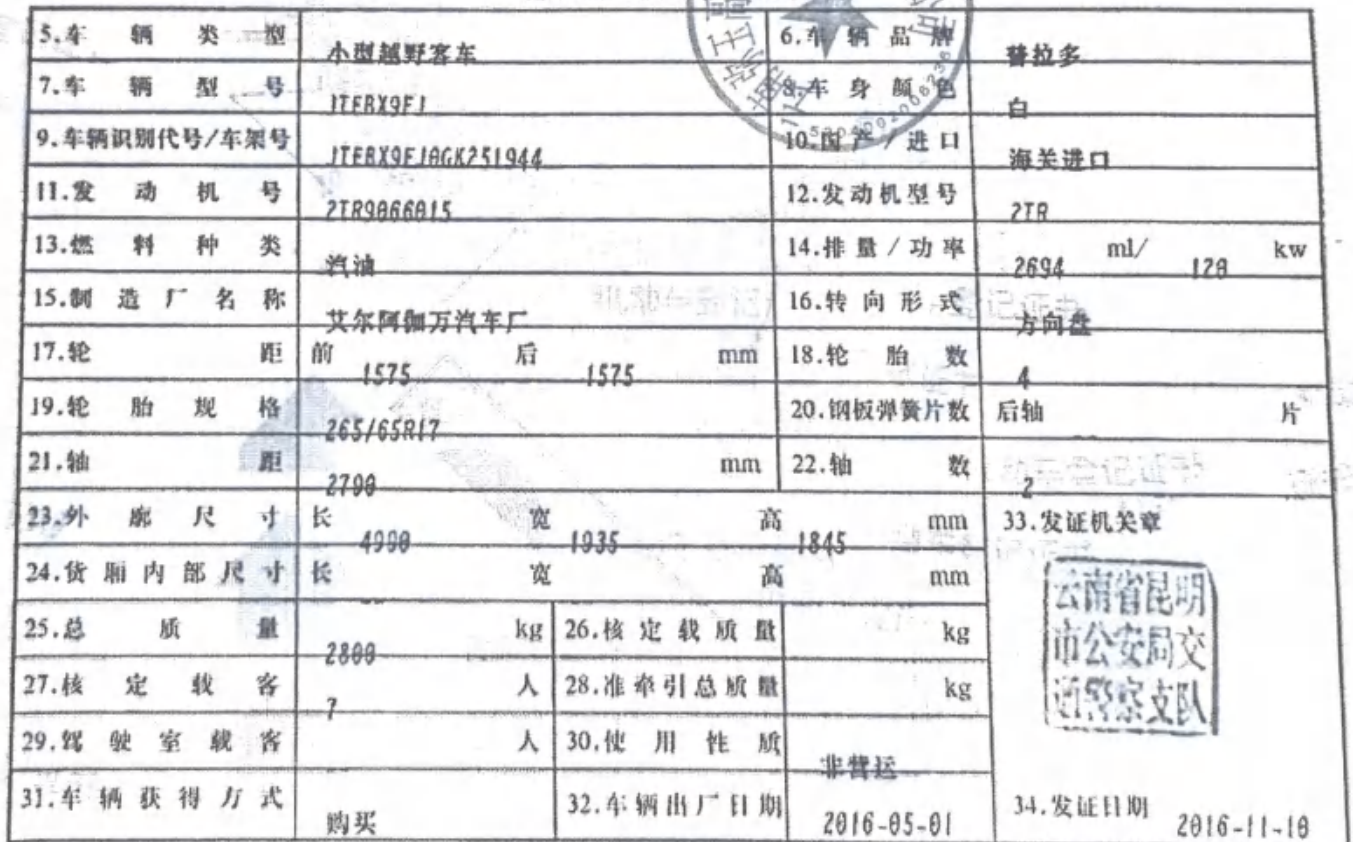 5.车辆类型 小型越野客车 6.车辆品牌 普拉多
7.车辆型号 JTEBX9FJ 8.车身颜色 白
9.车辆识别代号/车架号 JTEBX9FJ0GK251944 10.国产/进口 海关进口
11.发动机号 2TR9066015 12.发动机型号 2TR
13.燃料种类 汽油 14.排量/功率 2694 ml/ 120 kw
15.制造厂名称 艾尔阿伽万汽车厂 16.转向形式 方向盘
17.轮距 前 1575 后 1575 mm 18.轮胎数 4
19.轮胎规格 265/65R17 20.钢板弹簧片数 后轴 片
21.轴距 2790 mm 22.轴数 2
23.外廓尺寸 长 4990 宽 1935 高 1845 mm 33.发证机关章
24.货厢内部尺寸 长 宽 高 mm
云南省昆明
市公安局交
通警察支队
25.总质量 2800 kg 26.核定载质量 kg
27.核定载客 7 人 28.准牵引总质量 kg
29.驾驶室载客 人 30.使用性质 非营运
31.车辆获得方式 购买 32.车辆出厂日期 2016-05-01 34.发证日期 2016-11-10